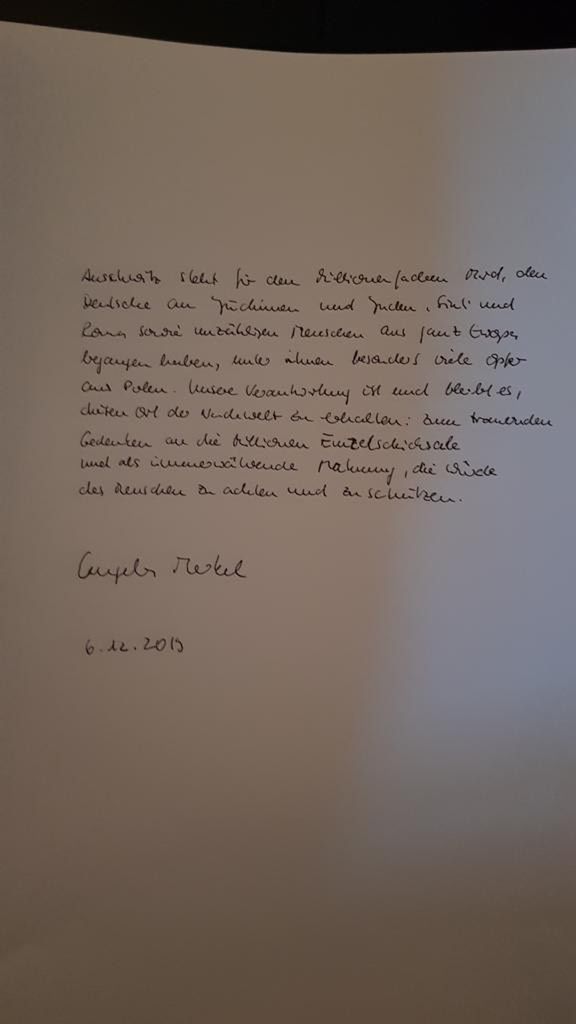 Auschwitz steht für den millionenfachen Mord, den
Deutsche an Jüdinnen und Juden, Sinti und
Roma sowie unzähligen Menschen aus ganz Europa
begangen haben, unter ihnen besonders viele Opfer
aus Polen. Unsere Verantwortung ist und bleibt es,
diesen Ort der Nachwelt zu erhalten: zum trauernden
Gedenken an die millionen Einzelschicksale
und als immerwährende Mahnung, die Würde
des Menschen zu achten und zu schützen.
Angela Merkel
6.12.2019